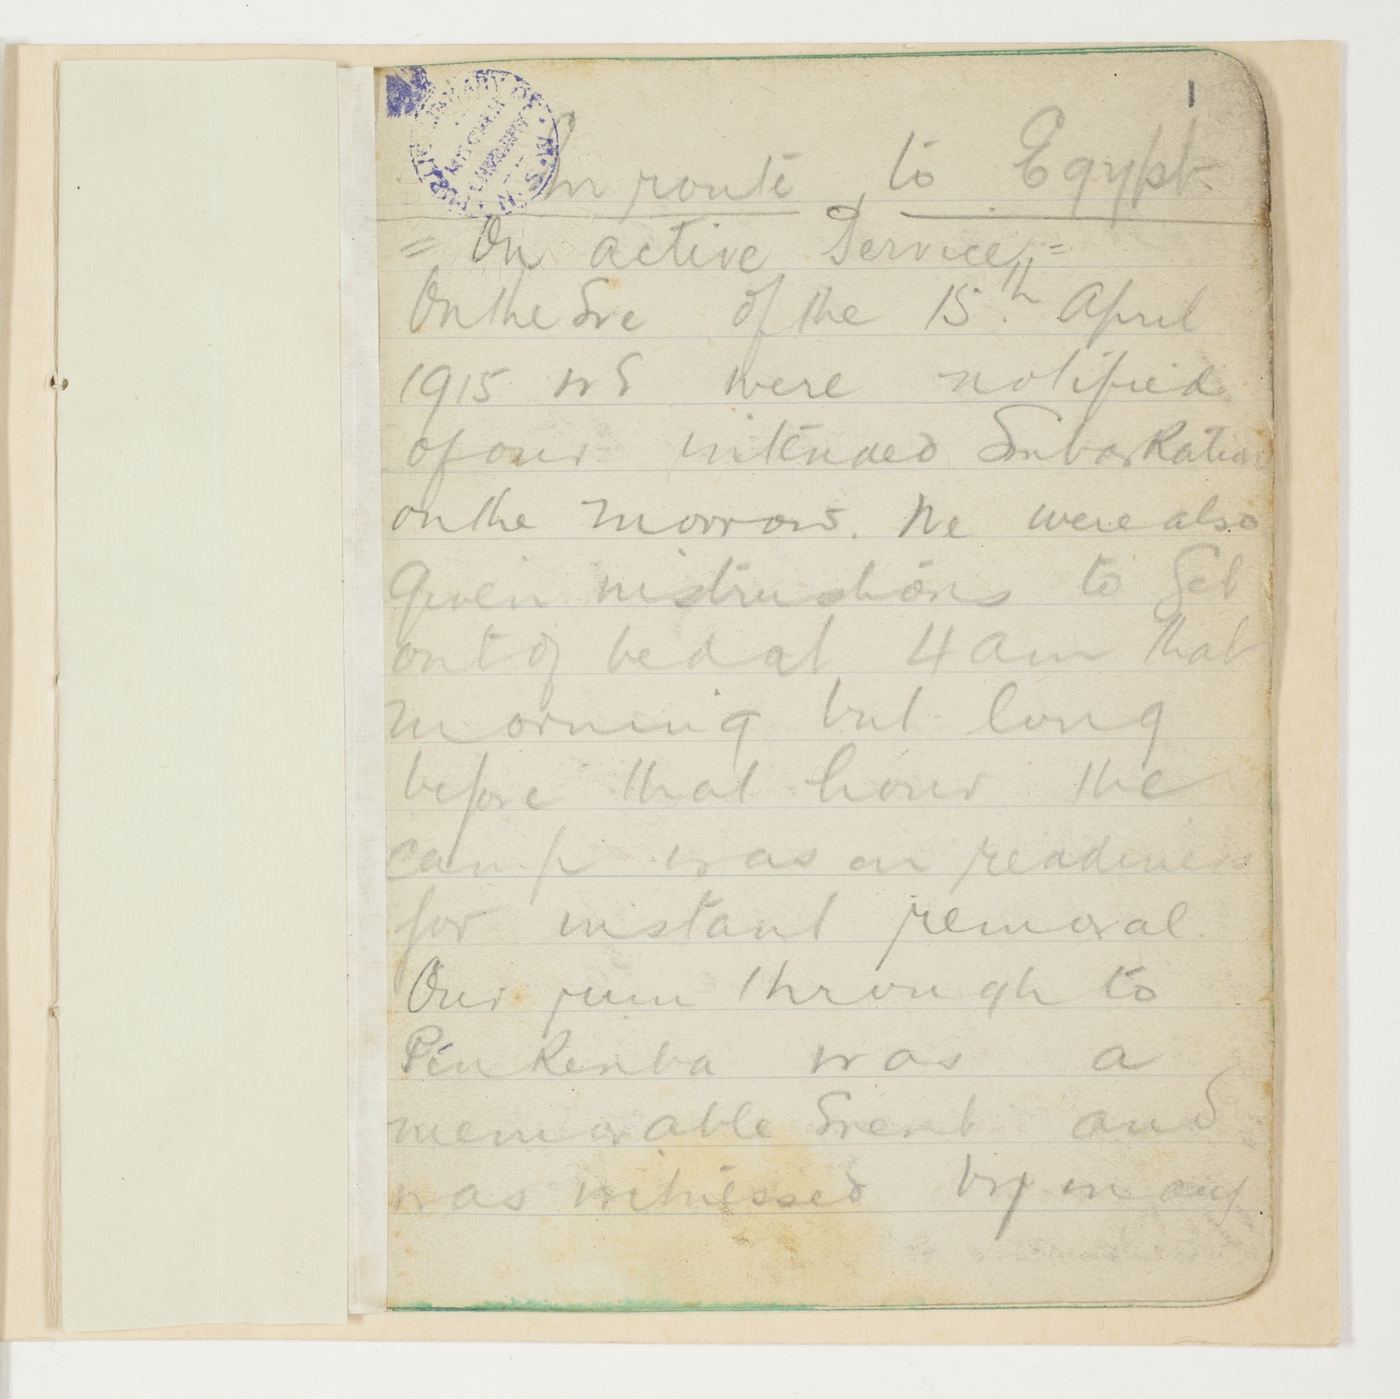 1
En route to Egypt.
PUBLIC LIBRARY OF N.S.W.
MITCHELL
LIBRARY
= On active Service =
On the Eve of the 15th April
1915 wE were notified
of our intended Embarkation
on the morrow. We were also
Given instructions to Get
out of bed at 4 am that
morning but long
before that hour the
camp was on readiness
for instant removal.
Our run through to
Penkenba was a
memorable Event and
was witnessed by many